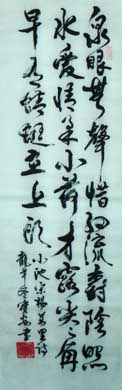 泉眼無聲惜細流樹陰照
水愛晴柔小荷才露尖尖角
早有蜻蜓立上頭
小池宋楊萬里詩